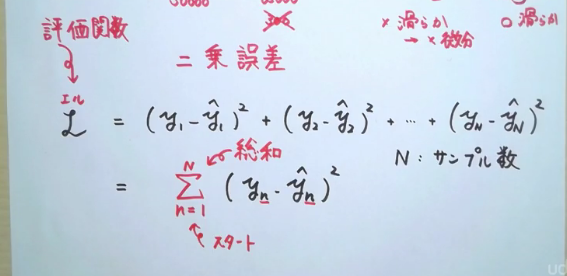 評価関数
× 滑らか
○ 滑らか
→ × 微分
二乗誤差
エル
ℒ = (y₁ - ŷ₁)² + (y₂ - ŷ₂)² + … + (y_N - ŷ_N)²
総和
N : サンプル数
= Σ_{n=1}^{N} (y_n - ŷ_n)²
スタート
UC